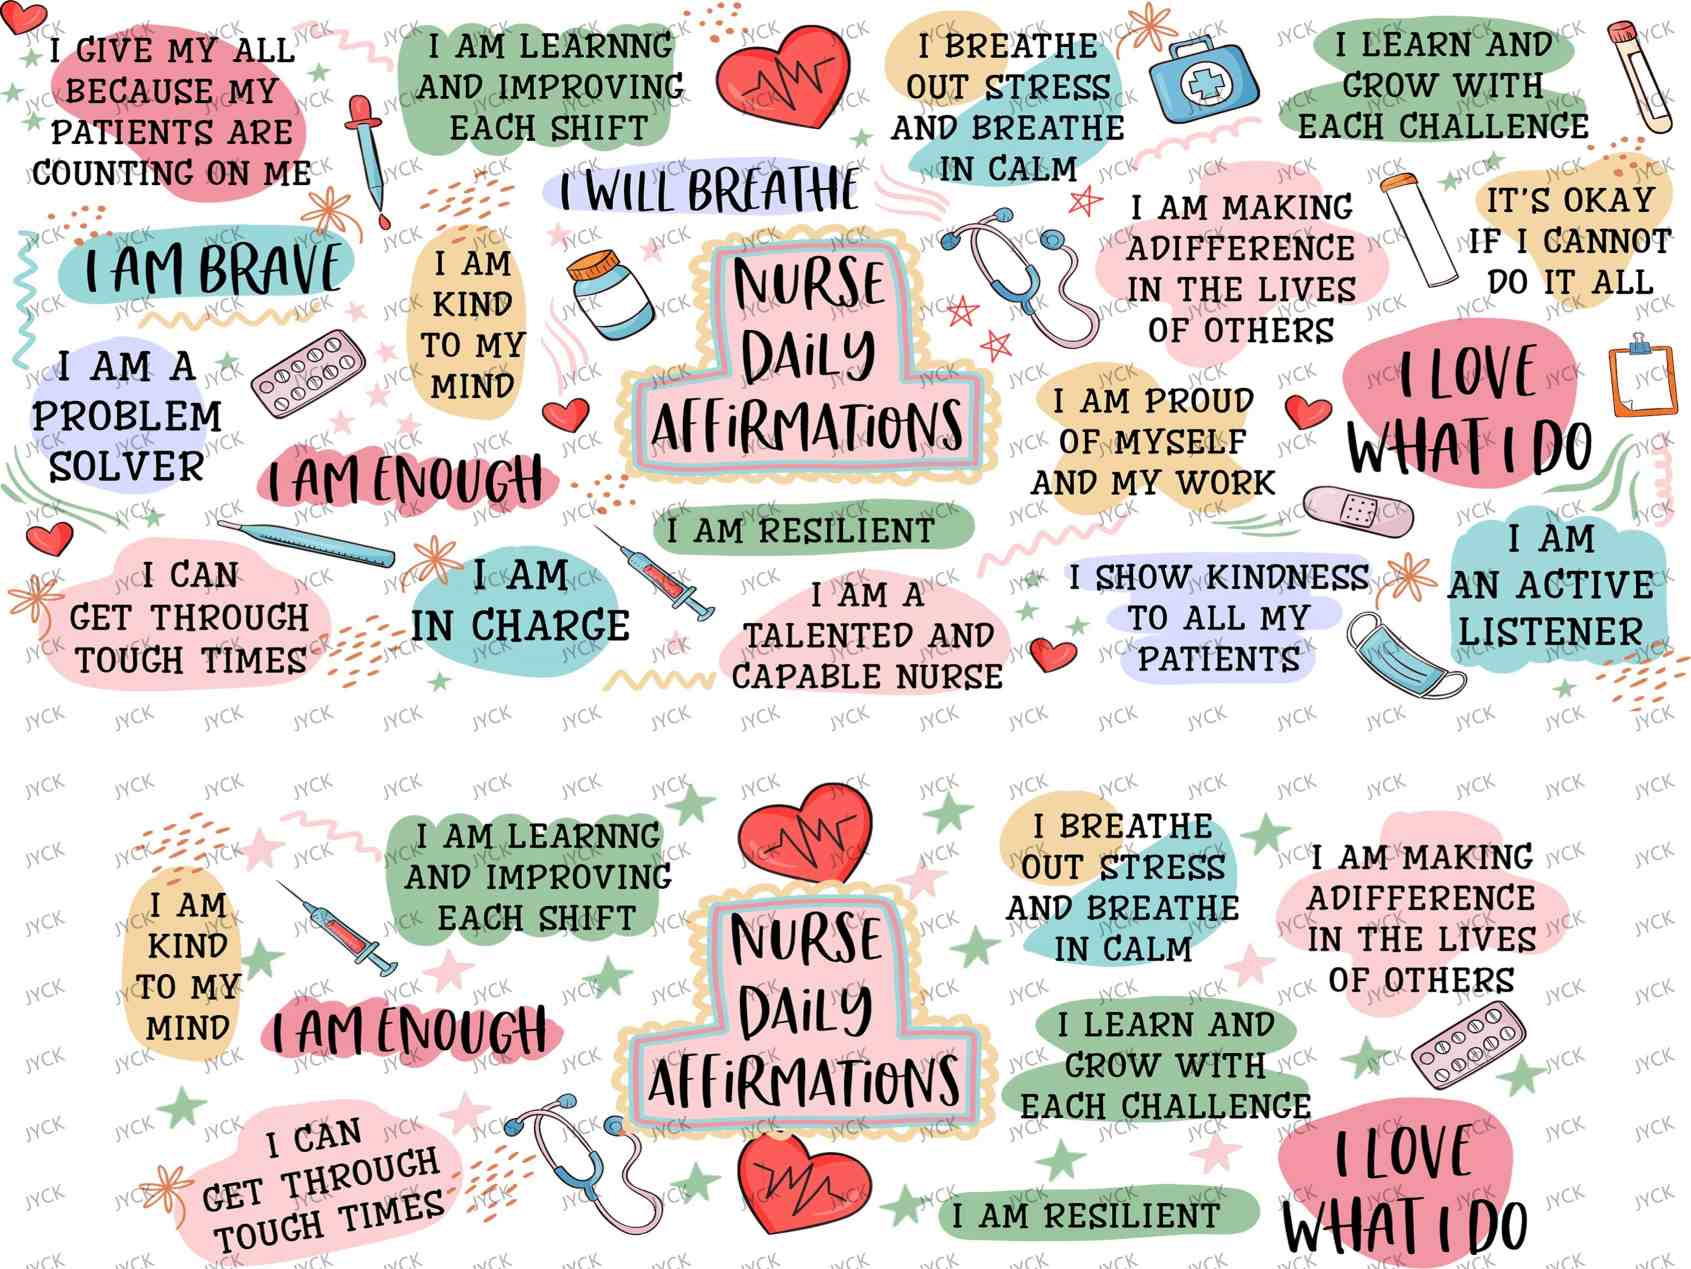 I GIVE MY ALL
BECAUSE MY
PATIENTS ARE
COUNTING ON ME
I AM LEARNNG
AND IMPROVING
EACH SHIFT
I BREATHE
OUT STRESS
AND BREATHE
IN CALM
I LEARN AND
GROW WITH
EACH CHALLENGE
I WILL BREATHE
I AM BRAVE
I AM
KIND
TO MY
MIND
NURSE
DAILY
AFFIRMATIONS
I AM MAKING
ADIFFERENCE
IN THE LIVES
OF OTHERS
IT'S OKAY
IF I CANNOT
DO IT ALL
I AM A
PROBLEM
SOLVER
I AM ENOUGH
I AM PROUD
OF MYSELF
AND MY WORK
I LOVE
WHAT I DO
I AM RESILIENT
I CAN
GET THROUGH
TOUGH TIMES
I AM
IN CHARGE
I AM A
TALENTED AND
CAPABLE NURSE
I SHOW KINDNESS
TO ALL MY
PATIENTS
I AM
AN ACTIVE
LISTENER
JYCK
I AM
KIND
TO MY
MIND
I AM LEARNNG
AND IMPROVING
EACH SHIFT
I AM ENOUGH
I CAN
GET THROUGH
TOUGH TIMES
NURSE
DAILY
AFFIRMATIONS
I BREATHE
OUT STRESS
AND BREATHE
IN CALM
I AM MAKING
ADIFFERENCE
IN THE LIVES
OF OTHERS
I LEARN AND
GROW WITH
EACH CHALLENGE
I AM RESILIENT
I LOVE
WHAT I DO